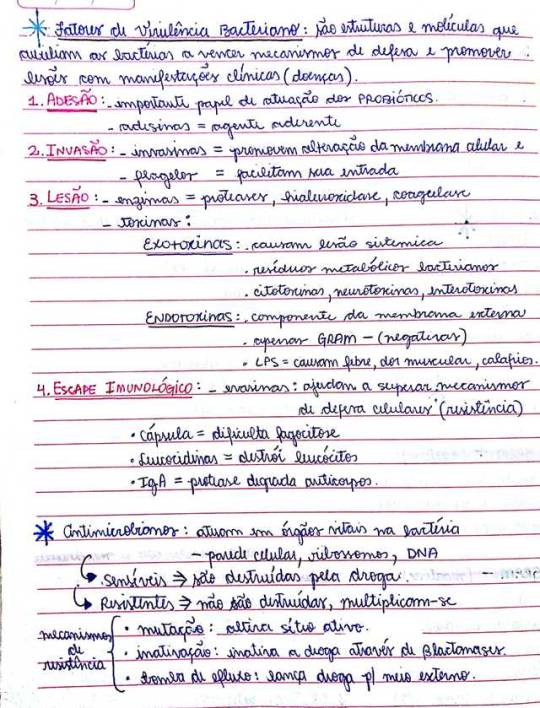 * Fatores de Virulência Bacteriano: são estruturas e moléculas que
auxiliam as bactérias a vencer mecanismos de defesa e promover
lesões com manifestações clínicas (doenças).
1. ADESÃO: - importante papel de atuação dos PROBIÓTICOS.
- adesinas = agente aderente
2. INVASÃO: - invasinas = promovem alteração da membrana celular e
- flagelos = facilitam sua entrada
3. LESÃO: - enzimas = proteases, hialuroxidase, coagulase
- toxinas:
EXOTOXINAS: . causam lesão sistemica
. resíduos metabólicos bacterianos
. citotoxinas, neurotoxinas, enterotoxinas
ENDOTOXINAS: . componente da membrana externa
. apenas GRAM - (negativas)
. LPS = causam febre, dor muscular, calafrios.
4. ESCAPE IMUNOLÓGICO: - evasinas: ajudam a superar mecanismos
de defesa celulares (resistência)
• Cápsula = dificulta fagocitose
• Leucocidinas = destrói leucócitos
• IgA = protease degrada anticorpos.
* Antimicrobianos: atuam em órgãos vitais na bactéria
- parede celular, ribossomos, DNA
Sensíveis ⇒ são destruídas pela droga
Resistentes ⇒ não são destruídas, multiplicam-se
mecanismos de resistência { • mutação: altera sítio ativo.
• inativação: inativa a droga através de Blactamases.
• Bomba de efluxo: lança droga p/ meio externo.